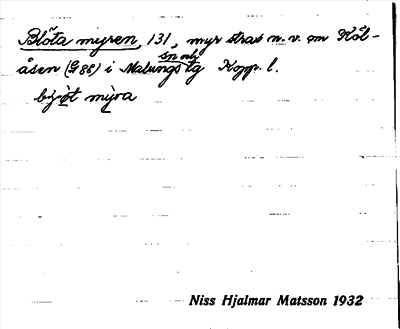 Blöta myren, 131, myr strax n. v. om Köl-
åsen (G 88) i Malungs sn och tg Kopp. l.
Niss Hjalmar Matsson 1932